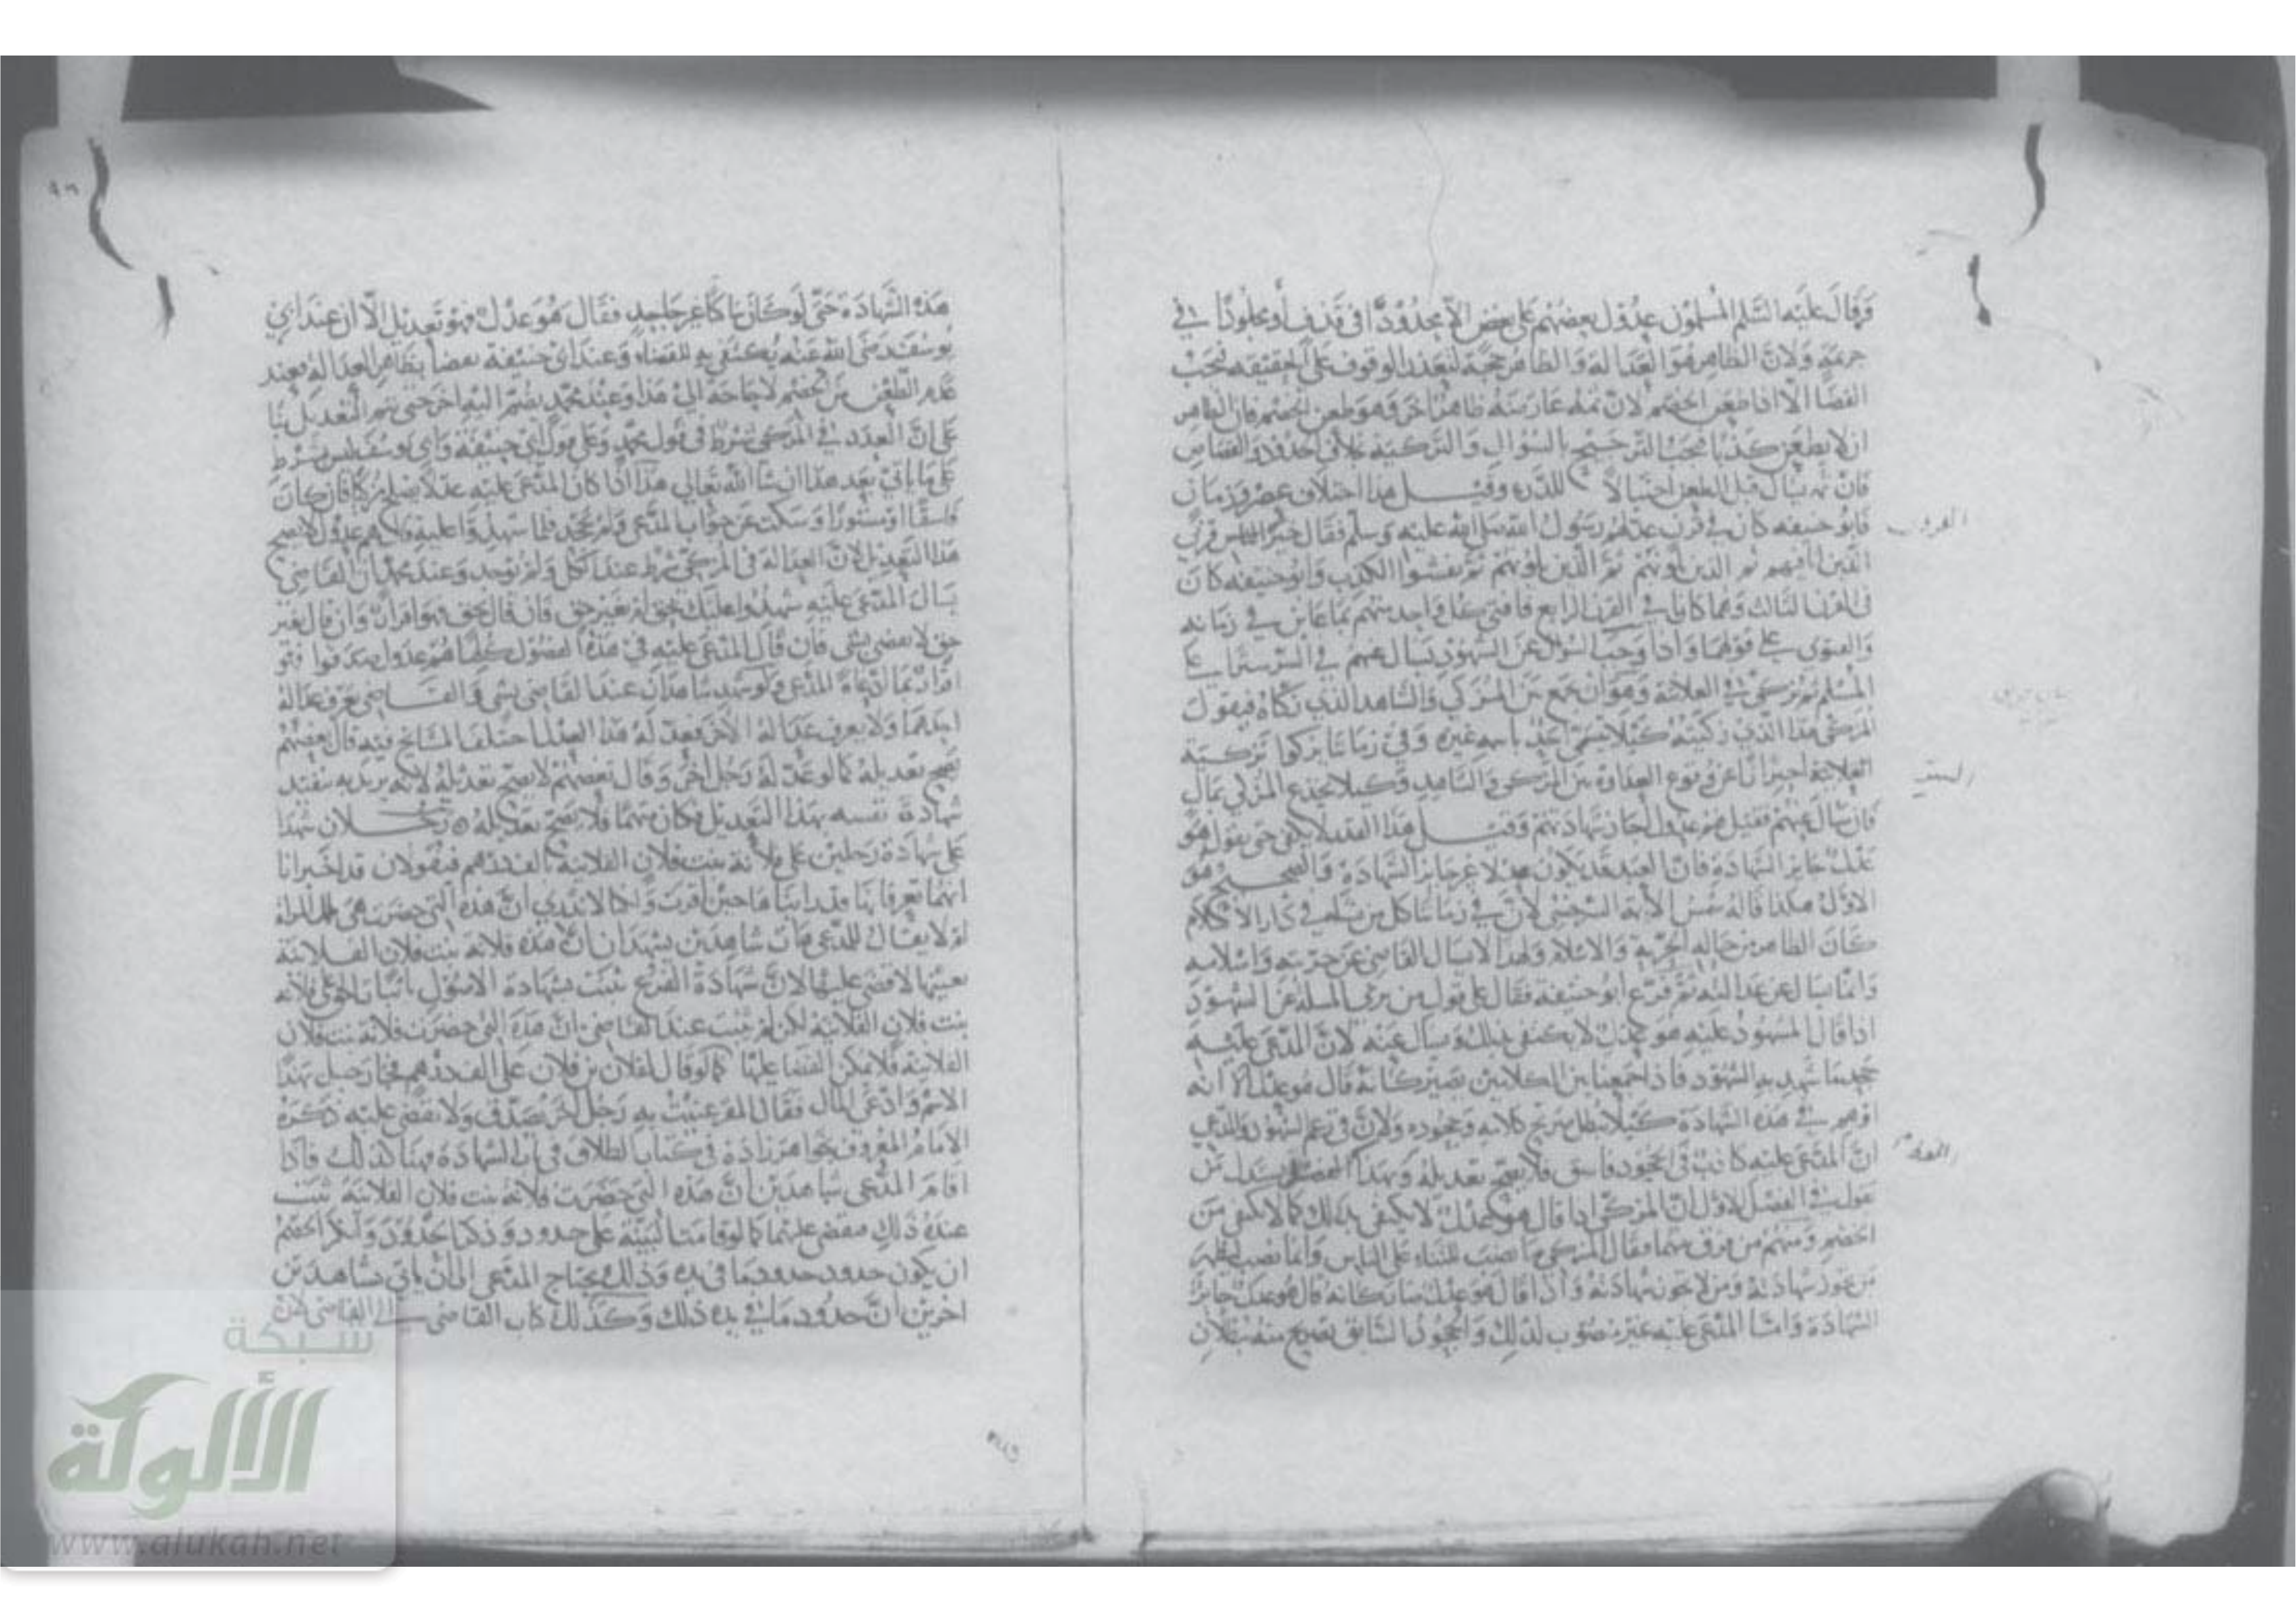 وقال عليه السلم المسلمون عدول بعضهم على بعض الا محدودا في قذف أو مجلودا في
جريمة ولان الظاهر هو العدالة والظاهر حجة لتعذر الوقوف على الحقيقة فيجب
القضا الا اذا طعن الخصم لان ثمه عارضه ظاهر اخر وهو طعن الخصم فان الظاهر
ان لا يطعن كذبا فيجب الترجيح بالسؤال والتزكية بخلاف الحدود والقصاص
فان ثم يسال قبل الطعن احتيالا للدرء وقيل هذا اختلاف عصر وزمان
فابو حنيفه كان في قرن رسول الله صلى الله عليه وسلم فقال خير الناس قرني
الذين انا فيهم ثم الذين يلونهم ثم الذين يلونهم ثم يفشوا الكذب وابو حنيفه كان
في القرن الثالث وهما كانا في القرن الرابع فافتى كل واحد منهم بما عاين في زمانه
والفتوى على قولهما واذا وجب السؤال عن الشهود يسال عنهم في السر
ثم يزكى في العلانية وهو ان يجمع بين المزكي والشاهد الذي زكاه فيقول
المزكي هذا الذي زكيته كيلا يتسمى باسم غيره وفي زماننا تركوا تزكية
العلانية احترازا عن وقوع العداوة بين المزكي والشاهد وكيلا يخدع المزكي بمال
فان سال عنهم فقيل هم عدول جاز شهادتهم وقيل هذا القدر لا يكفي حتى يقول هو
عدل جايز الشهادة فان العبد قد يكون عدلا غير جايز الشهادة والصحيح هو
الاول هكذا قاله شمس الايمة السرخسي لان في زماننا كل من نشا في دار الاسلام
كان الظاهر من حاله الحرية والاسلام ولهذا لا يسال القاضي عن حريته واسلامه
وانما يسال عن عدالته ثم فرع ابو حنيفة فقال على قول من يرى المسلة عن الشهود
اذا قال المشهود عليه هو عدل لا يكتفى بذلك ويسال عنه لان المدعى عليه
يجحد ما شهد به الشهود فاذا جمعنا بين الكلامين يصير كانه قال هو عدل الا انه
اوهم في هذه الشهادة كيلا يبطل صريح كلامه وجحوده ولان في زعم الشهود والمدعي
ان المدعى عليه كاذب في الجحود فاسق فلا يصح تعديله وبهذا الفصل يستدل من
يقول في الفصل الاول ان المزكي اذا قال هو عدل لا يكتفي بذلك كما لا يكتفي من
الخصم ومنهم من فرق بينهما فقال المزكي ما نصب للثناء على الناس وانما نصب ليظهر
من يجوز شهادته ومن لا يجوز شهادته واذا قال هو عدل صار كانه قال هو عدل جائز
الشهادة واما المدعى عليه غير منصوب لذلك والجحود السابق تصريح منه ببطلان
القرون
السر
هذه الشهادة حتى لو كان ساكتا غير جاحد فقال هو عدل فهو تعديل الا ان عند ابي
يوسف رضي الله عنه يكتفى به للقضاء وعند ابي حنيفة بظاهر العدالة عند
عدم الطعن من الخصم لا حاجة الى هذا وعند محمد يضم اليه اخر حتى يتم التعديل بنا
على ان العدد في المزكي شرط في قول محمد وعلى قول ابي حنيفة وابي يوسف ليس بشرط
على ما ياتي بعد هذا ان شا الله تعالى هذا اذا كان المدعى عليه عدلا يصلح مزكيا فان كان
فاسقا او مستورا وسكت عن جواب المدعي ولم يجحد فلما شهدوا عليه قال هم عدول لا يصح
هذا التعديل لان العدالة في المزكي شرط عند الكل ولم توجد وعند محمد ان القاضي
يسال المدعى عليه شهدوا عليك بحق ام بغير حق فان قال بحق فهو اقرار وان قال بغير
حق لا يقضى بشي فان قال المدعى عليه في هذه الفصول كلها هم عدول صدقوا فهو
اقرار بما ادعاه المدعي ولو شهد شاهدان عند القاضي بشي والقاضي يعرف عدالة
احدهما ولا يعرف عدالة الاخر فعدله هذا العدل اختلف المشايخ فيه قال بعضهم
يصح تعديله كما لو عدله رجل اخر وقال بعضهم لا يصح تعديله لانه يريد به تنفيذ
شهادة نفسه بهذا التعديل وكان متهما فلا يصح تعديله رجلان شهدا
على شهادة رجلين على فلانة بنت فلان الفلانية بالف درهم فيقولان قد اخبرانا
انهما يعرفانها حين اقرت وانا لا ندري ان هذه التي حضرت هي تلك المراة
ام لا يقال للمدعي هات شاهدين يشهدان ان هذه فلانة بنت فلان الفلانية
بعينها لاقضي عليها لان شهادة الفرع تثبت بشهادة الاصول على فلانه
بنت فلان الفلانية لكن لم تثبت عند القاضي ان هذه التي حضرت فلانة بنت فلان
الفلانية فلا يمكن القضا عليها كما لو قال لفلان بن فلان علي الف درهم فجا رجل بهذا
الاسم وادعى المال فقال المقر عنيت به رجلا اخر صدق ولا يقضى عليه ذكره
الامام المعروف بخواهر زاده في كتاب الطلاق في باب الشهادة وهنا كذلك فاذا
اقام المدعي شاهدين ان هذه التي حضرت فلانة بنت فلان الفلانية ثبت
عنده ذلك فيقضي عليها كما لو قامت البينة على حدود وذكرا حدود وانكر الخصم
ان يكون حدود ما في يده وذلك يحتاج المدعي الى ان ياتي بشاهدين
اخرين ان حدود ما في يده ذلك وكذلك كتاب القاضي الى القاضي لان
شبكة
الألوكة
www.alukah.net